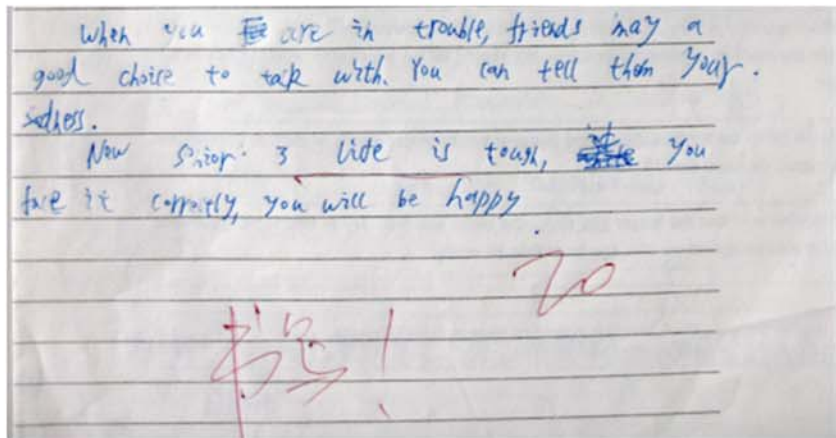 When you are in trouble, friends may a
good choice to talk with. You can tell them your.
sadness.
Now Senior 3 life is tough, if you
face it correctly, you will be happy.
20
书写!